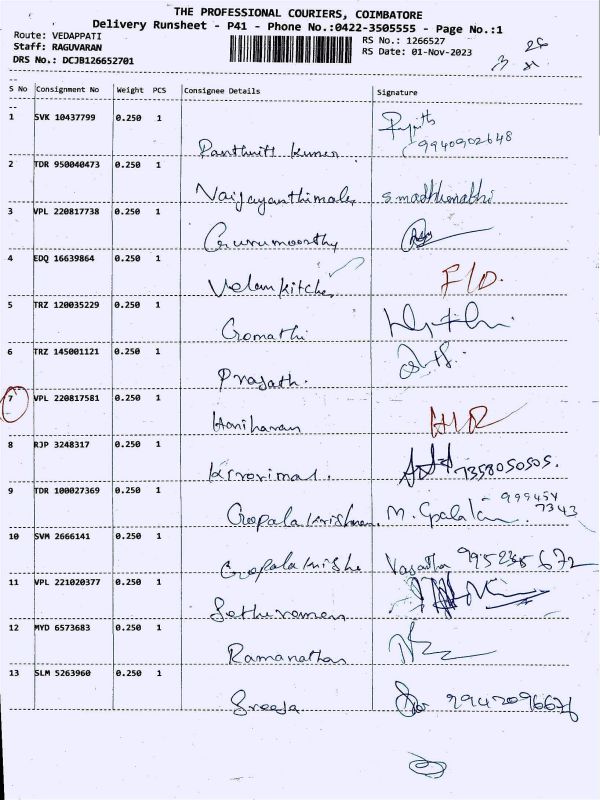 THE PROFESSIONAL COURIERS, COIMBATORE
Delivery Runsheet - P41 - Phone No.:0422-3505555 - Page No.:1
Route: VEDAPPATI
Staff: RAGUVARAN
DRS No.: DCJB126652701
RS No.: 1266527
RS Date: 01-Nov-2023
S No Consignment No Weight PCS Consignee Details Signature
1 SVK 10437799 0.250 1
9940902648
2 TDR 950040473 0.250 1
Vaijayanthimala
3 VPL 220817738 0.250 1
Gurumoorthy
4 EDQ 16639864 0.250 1
Velan kitchen F/D.
5 TRZ 120035229 0.250 1
Gomathi
6 TRZ 145001121 0.250 1
Prasath.
7 VPL 220817581 0.250 1
Hariharan
8 RJP 3248317 0.250 1
7358050505.
9 TDR 100027369 0.250 1
Gopalakrishnan. M. Gpalakn 999454 7343
10 SVM 2666141 0.250 1
Vasadha 9952385672
11 VPL 221020377 0.250 1
Sethuraman
12 MYD 6573683 0.250 1
Ramanathan
13 SLM 5263960 0.250 1
Sreeja 9942096676